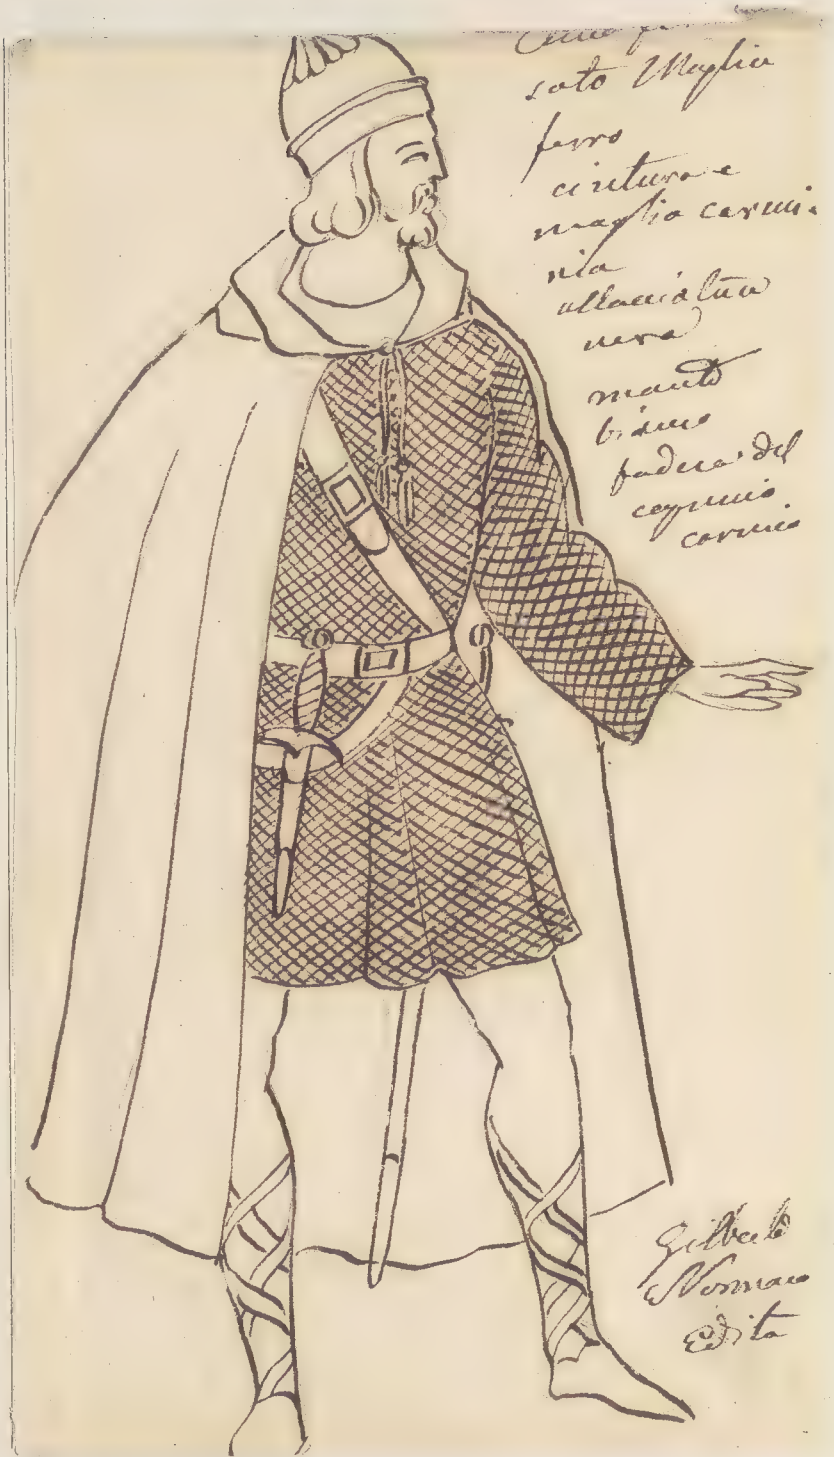 sato Maglia
ferro
cintura e
maglia carmi-
nia
allacciatura
nera
manto
bianco
fodera del
carminio
Gilberto
Normano
Edita